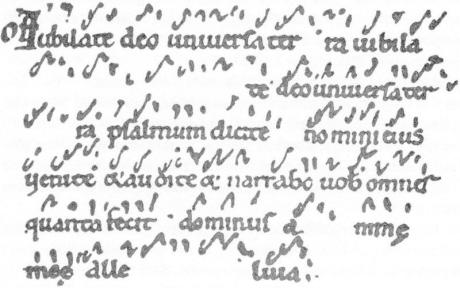 Of Iubilate deo uniuersa ter ra iubila
te deo uniuersa ter
ra psalmum dicite nomini eius
uenite & audite & narrabo uob omnes
quanta fecit dominus a nimę
męę alle luia :